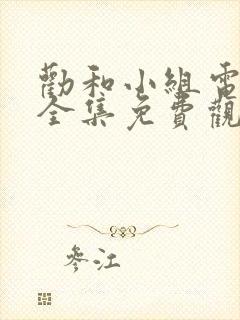 勸和小組電
全集免費觀
參江